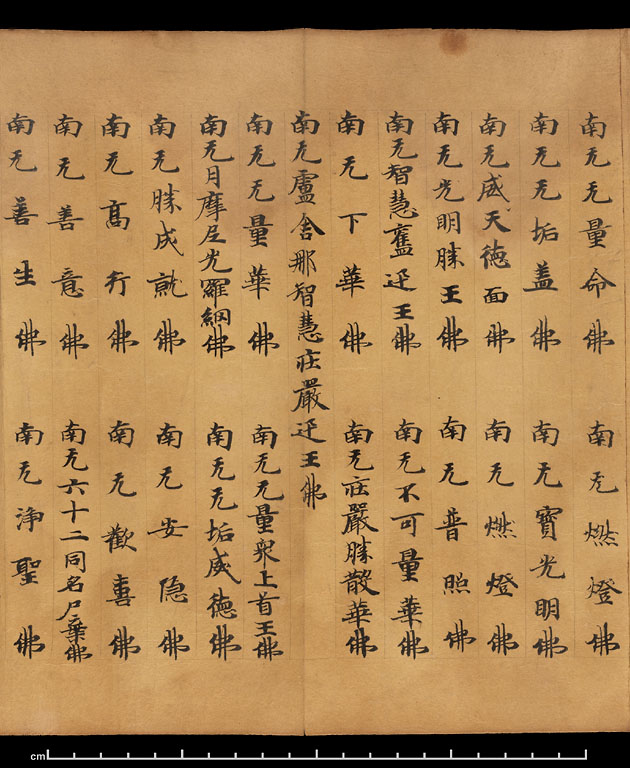 南无无量命佛 南无燃燈佛
南无无垢盖佛 南无寶光明佛
南无威天德面佛 南无燃燈佛
南无光明勝王佛 南无普照佛
南无智慧奮迅王佛 南无不可量華佛
南无下華佛 南无莊嚴勝散華佛
南无盧舍那智慧莊嚴迅王佛
南无无量華佛 南无无量衆上首王佛
南无月摩尼光羅網佛 南无无垢威德佛
南无勝成就佛 南无安隐佛
南无髙行佛 南无歡喜佛
南无善意佛 南无六十二同名尸棄佛
南无善生佛 南无淨聖佛
cm